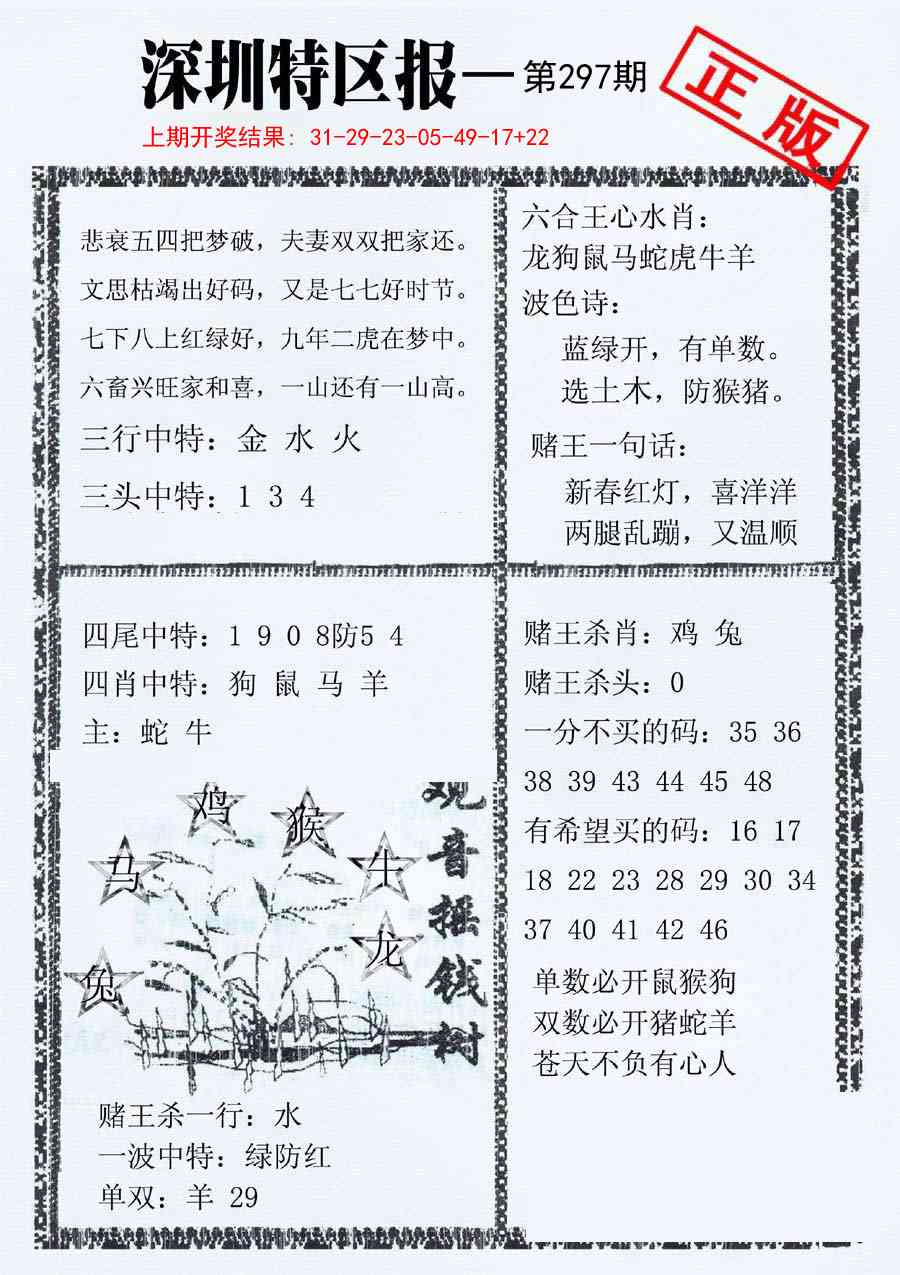 深圳特区报—第297期
正版
上期开奖结果: 31-29-23-05-49-17+22
悲哀五四把梦破，夫妻双双把家还。
文思枯竭出好码，又是七七好时节。
七下八上红绿好，九年二虎在梦中。
六畜兴旺家和喜，一山还有一山高。
三行中特：金 水 火
三头中特：1 3 4
六合王心水肖：
龙狗鼠马蛇虎牛羊
波色诗：
蓝绿开，有单数。
选土木，防猴猪。
赌王一句话：
新春红灯，喜洋洋
两腿乱蹦，又温顺
四尾中特：1 9 0 8防5 4
四肖中特：狗 鼠 马 羊
主：蛇 牛
鸡
猴
马
牛
龙
兔
观音摇钱树
赌王杀一行：水
一波中特：绿防红
单双：羊 29
赌王杀肖：鸡 兔
赌王杀头：0
一分不买的码：35 36
38 39 43 44 45 48
有希望买的码：16 17
18 22 23 28 29 30 34
37 40 41 42 46
单数必开鼠猴狗
双数必开猪蛇羊
苍天不负有心人